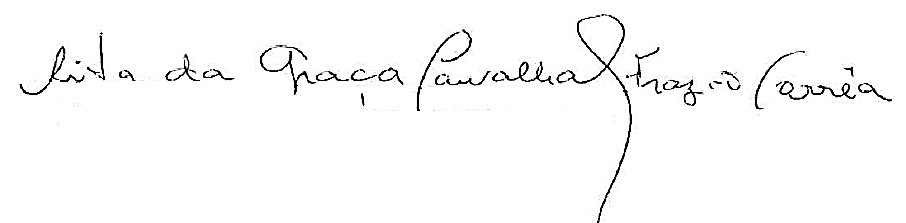 Rita da Graça Carvalhal Frazão Corrêa